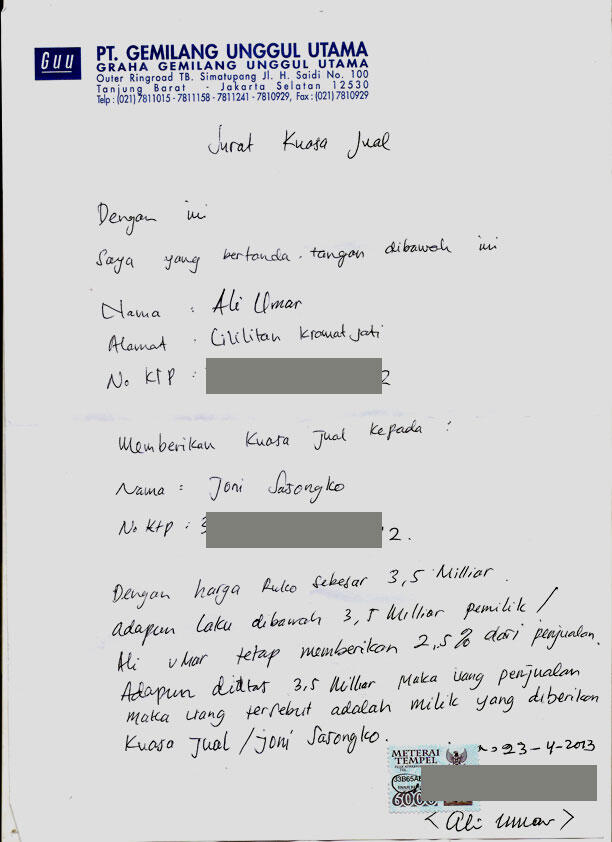 Guu
PT. GEMILANG UNGGUL UTAMA
GRAHA GEMILANG UNGGUL UTAMA
Outer Ringroad TB. Simatupang Jl. H. Saidi No. 100
Tanjung Barat - Jakarta Selatan 12530
Telp : (021) 7811015 - 7811158 - 7811241 - 7810929, Fax : (021) 7810929
Surat Kuasa Jual
Dengan ini
Saya yang bertanda tangan dibawah ini
Nama : Ali Umar
Alamat : Cililitan Kramat jati
No KTP : 2
Memberikan Kuasa Jual kepada :
Nama : Joni Sasongko
No Ktp : 3 2.
Dengan harga Ruko sebesar 3,5 Milliar.
adapun laku dibawah 3,5 Milliar pemilik /
Ali Umar tetap memberikan 2,5% dari penjualan.
Adapun diatas 3,5 Milliar maka uang penjualan
maka uang tersebut adalah milik yang diberikan
Kuasa Jual / Joni Sasongko.
23-4-2013
METERAI
TEMPEL
6000
< Ali Umar >